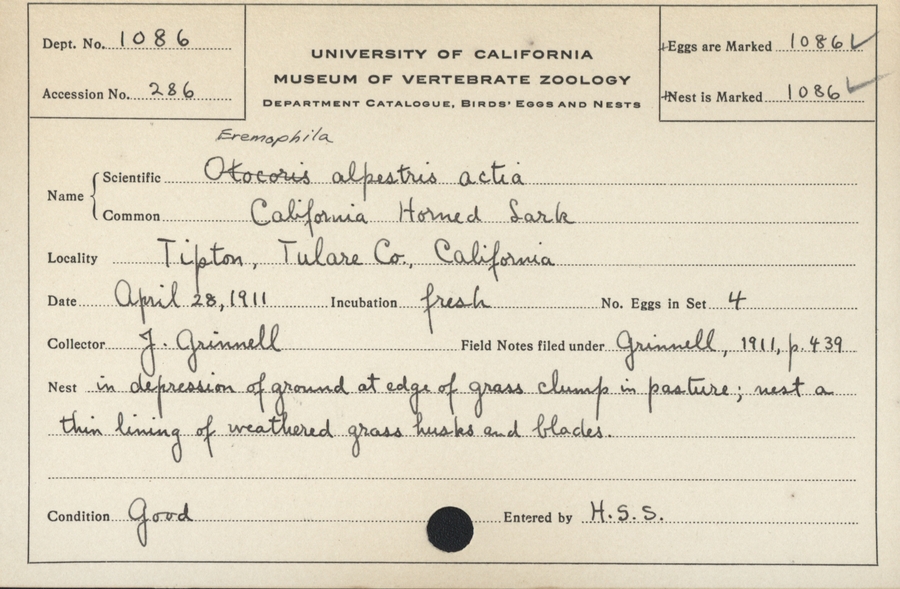 Dept. No. 1086
Accession No. 286
UNIVERSITY OF CALIFORNIA
MUSEUM OF VERTEBRATE ZOOLOGY
DEPARTMENT CATALOGUE, BIRDS' EGGS AND NESTS
Eggs are Marked 1086
Nest is Marked 1086
Eremophila
Name
Scientific Otocoris alpestris actia
Common California Horned Lark
Locality Tipton, Tulare Co., California
Date April 28, 1911 Incubation fresh No. Eggs in Set 4
Collector J. Grinnell Field Notes filed under Grinnell, 1911, p. 439
Nest in depression of ground at edge of grass clump in pasture; nest a
thin lining of weathered grass husks and blades.
Condition Good Entered by H.S.S.